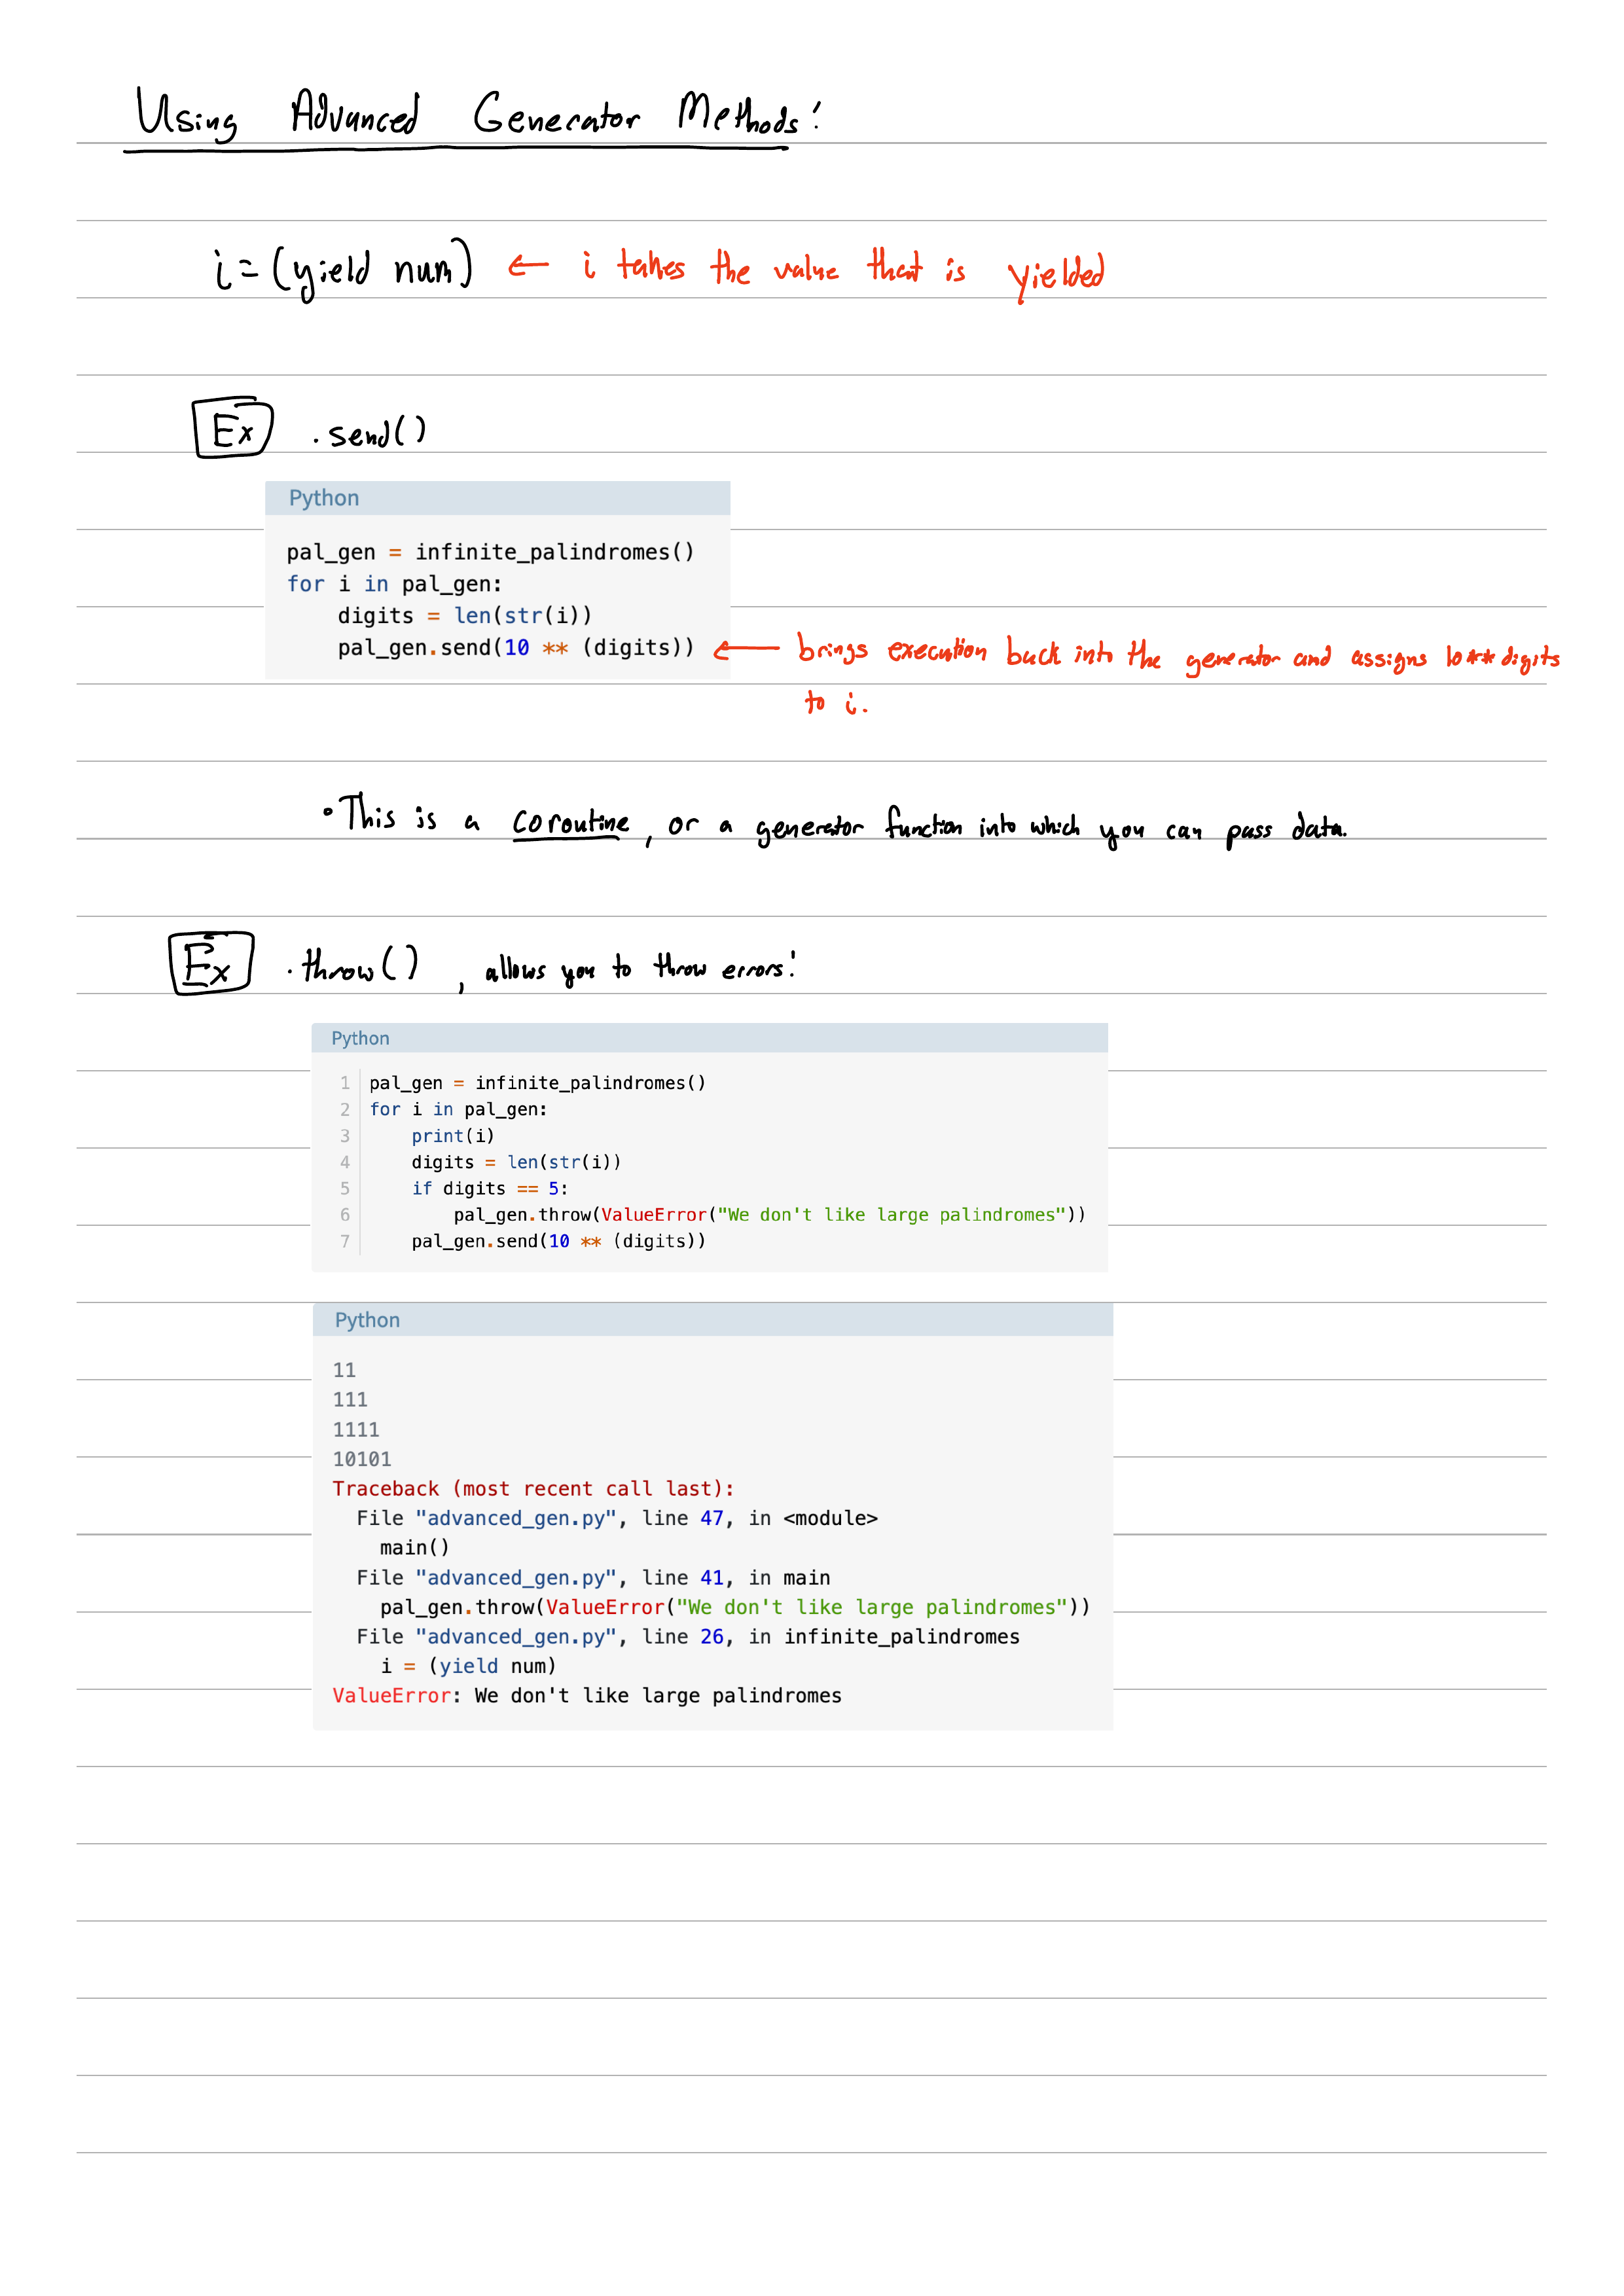 Using Advanced Generator Methods:
i = (yield num) ← i takes the value that is yielded
Ex .send()
Python
pal_gen = infinite_palindromes()
for i in pal_gen:
    digits = len(str(i))
    pal_gen.send(10 ** (digits)) ← brings execution back into the generator and assigns 10**digits
to i.
• This is a coroutine, or a generator function into which you can pass data.
Ex .throw() , allows you to throw errors:
Python
1 pal_gen = infinite_palindromes()
2 for i in pal_gen:
3     print(i)
4     digits = len(str(i))
5     if digits == 5:
6         pal_gen.throw(ValueError("We don't like large palindromes"))
7     pal_gen.send(10 ** (digits))
Python
11
111
1111
10101
Traceback (most recent call last):
  File "advanced_gen.py", line 47, in <module>
    main()
  File "advanced_gen.py", line 41, in main
    pal_gen.throw(ValueError("We don't like large palindromes"))
  File "advanced_gen.py", line 26, in infinite_palindromes
    i = (yield num)
ValueError: We don't like large palindromes